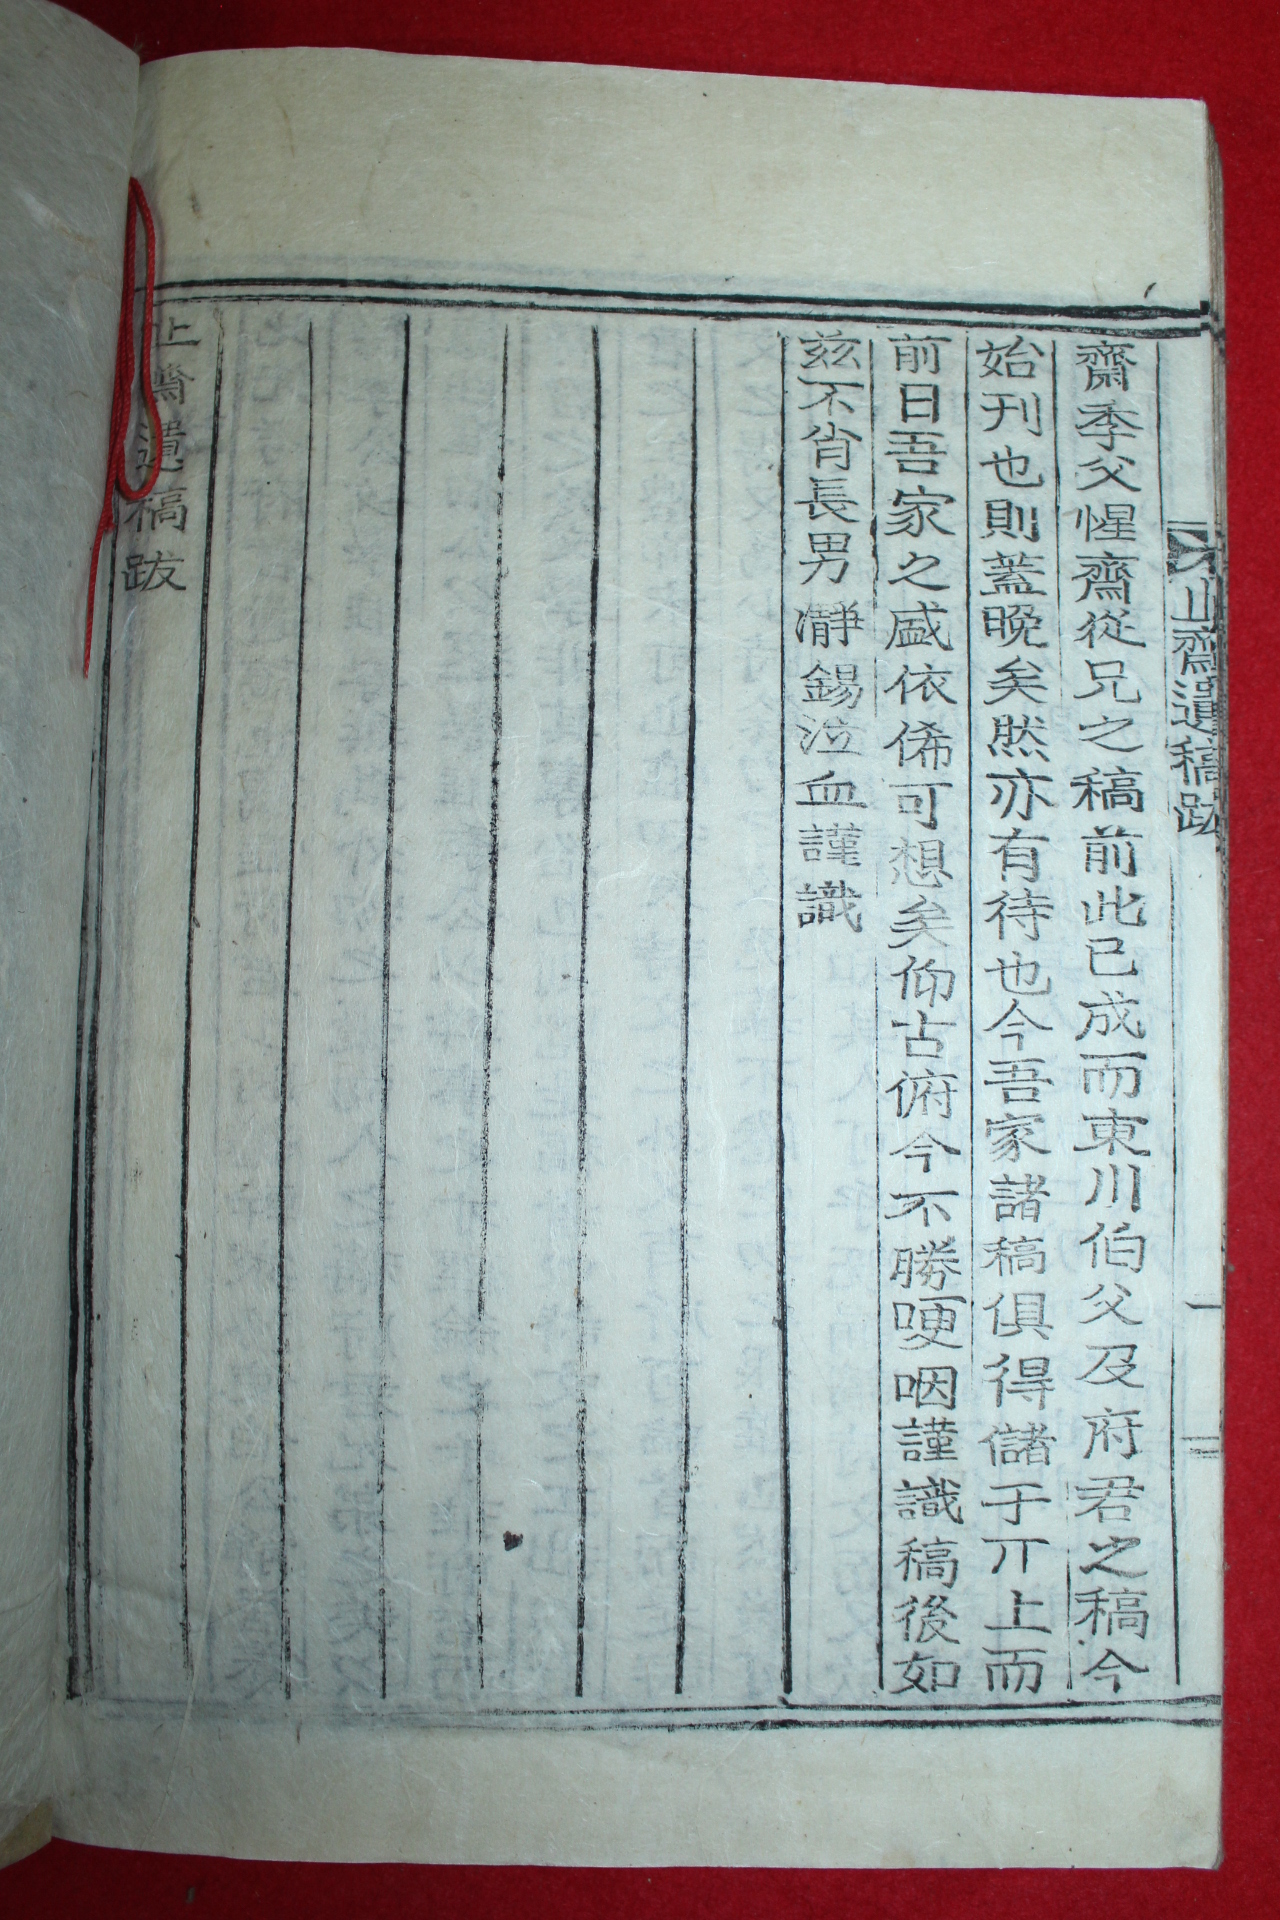 山齋遺稿跋
一
齋季父惺齋從兄之稿前此已成而東川伯父及府君之稿今
始刊也則蓋晩矣然亦有待也今吾家諸稿俱得儲于丌上而
前日吾家之盛依俙可想矣仰古俯今不勝哽咽謹識稿後如
茲不肖長男瀞錫泣血謹識
齋遺稿跋